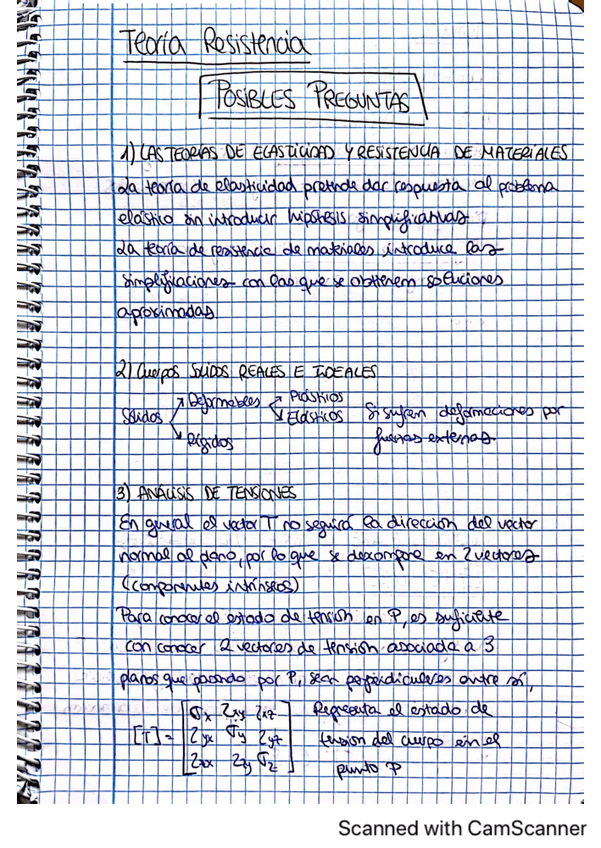 Teoría Resistencia
POSIBLES PREGUNTAS
1) LAS TEORIAS DE ELASTICIDAD Y RESISTENCIA DE MATERIALES
La teoría de elasticidad pretende dar respuesta al problema
elástico sin introducir hipótesis simplificativas
La teoría de resistencia de materiales introduce las
simplificaciones con las que se obtienen soluciones
aproximadas.
2) Cuerpos SOLIDOS REALES E IDEALES
Sólidos
Deformables
Plásticos
Elásticos
Rígidos
Si sufren deformaciones por
fuerzas externas.
3) ANÁLISIS DE TENSIONES
En general el vector T no seguirá la dirección del vector
normal al plano, por lo que se descompone en 2 vectores
(componentes intrínsecos)
Para conocer el estado de tensión en P, es suficiente
con conocer 2 vectores de tensión asociada a 3
planos que pasando por P, sean perpendiculares entre sí,
[T] =
σx τxy τxz
τyx σy τyz
τzx τzy σz
Representa el estado de
tensión del cuerpo en el
punto P
Scanned with CamScanner